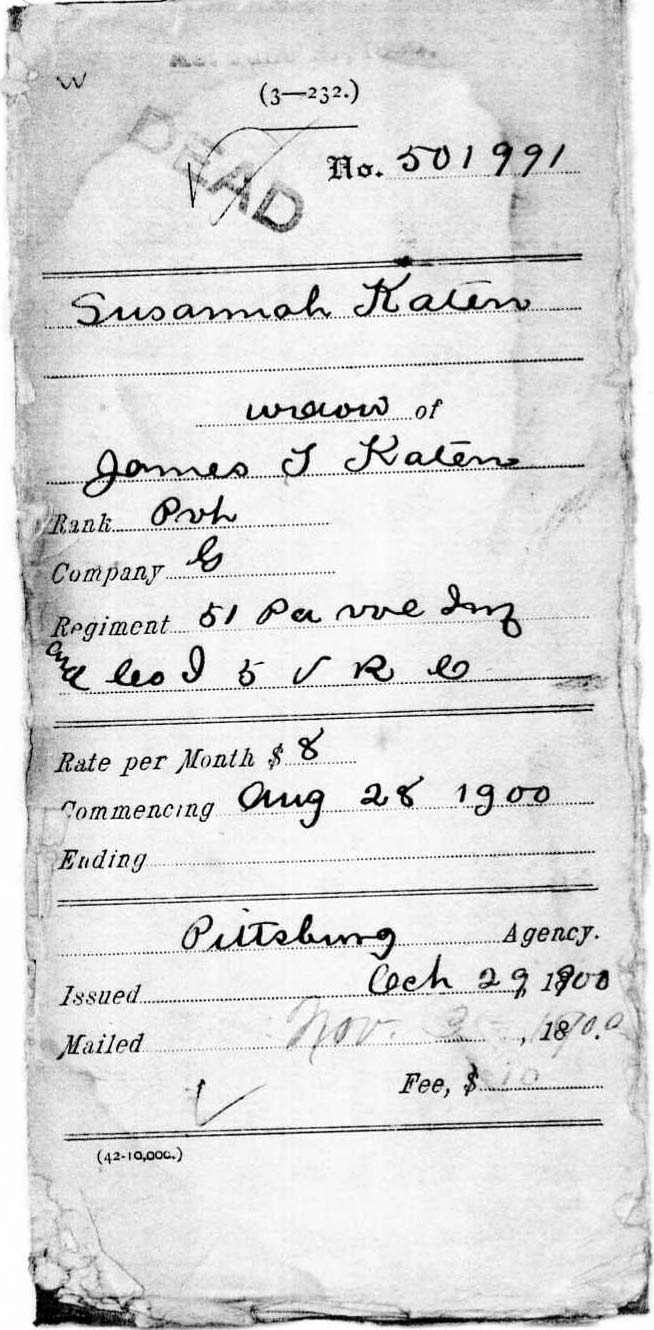 W
(3—232.)
DEAD
No. 501991
Susannah Katen
widow of
James T Katen
Rank Pvt
Company G
Regiment 51 Pa vol Inf
and Co I 5 V R C
Rate per Month $ 8
Commencing Aug 28 1900
Ending
Pittsburg Agency.
Issued Oct 29, 1900
Mailed Nov. 3, 1900
Fee, $ 10
(42-10,000.)